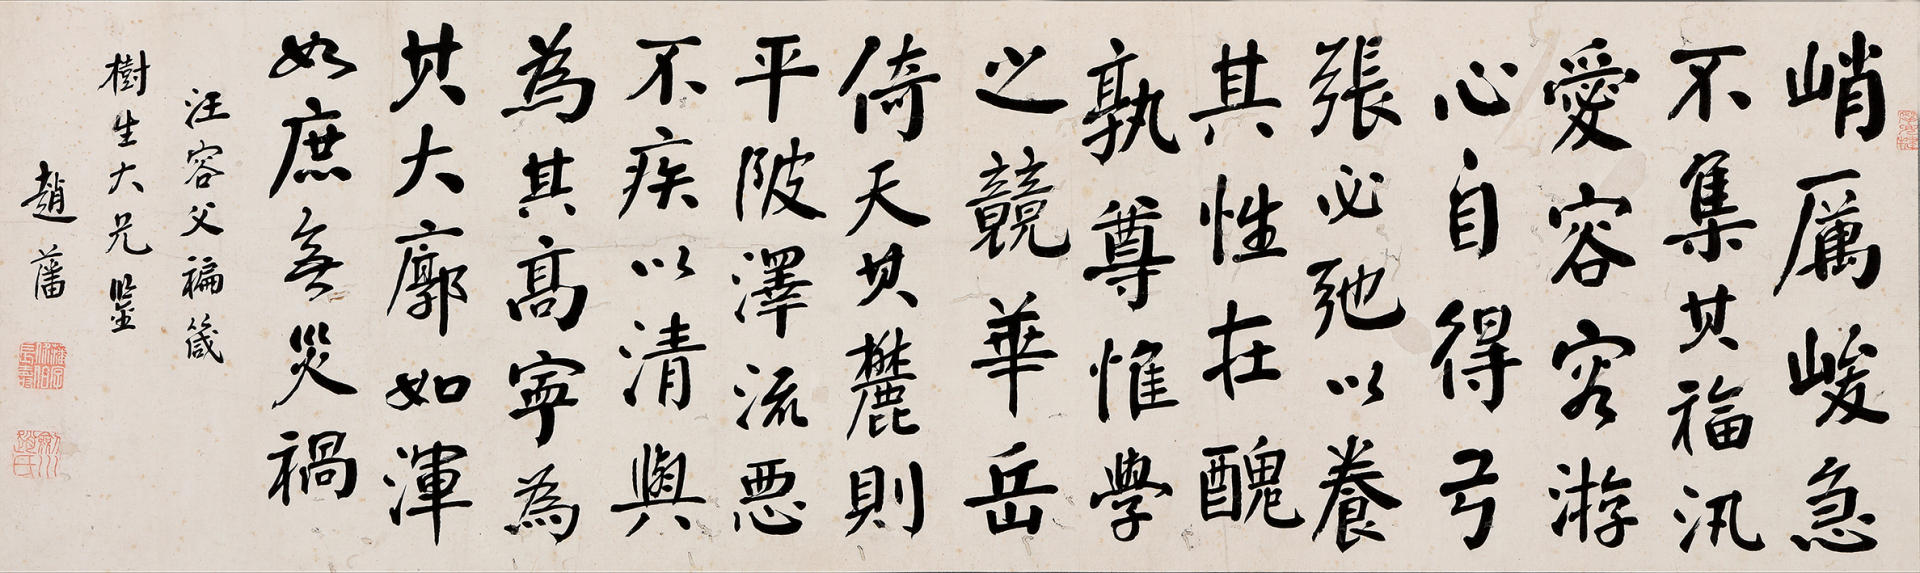 峭厲峻急
不集其福汎
愛容容游
心自得弓
張必弛以養
其性在醜
孰尊惟學
之競華岳
倚天其麓則
平陂澤流惡
不疾以清與
為其高寧為
其大廓如渾
如庶無災禍
汪容父褊箴
樹生大兄鑒
趙藩